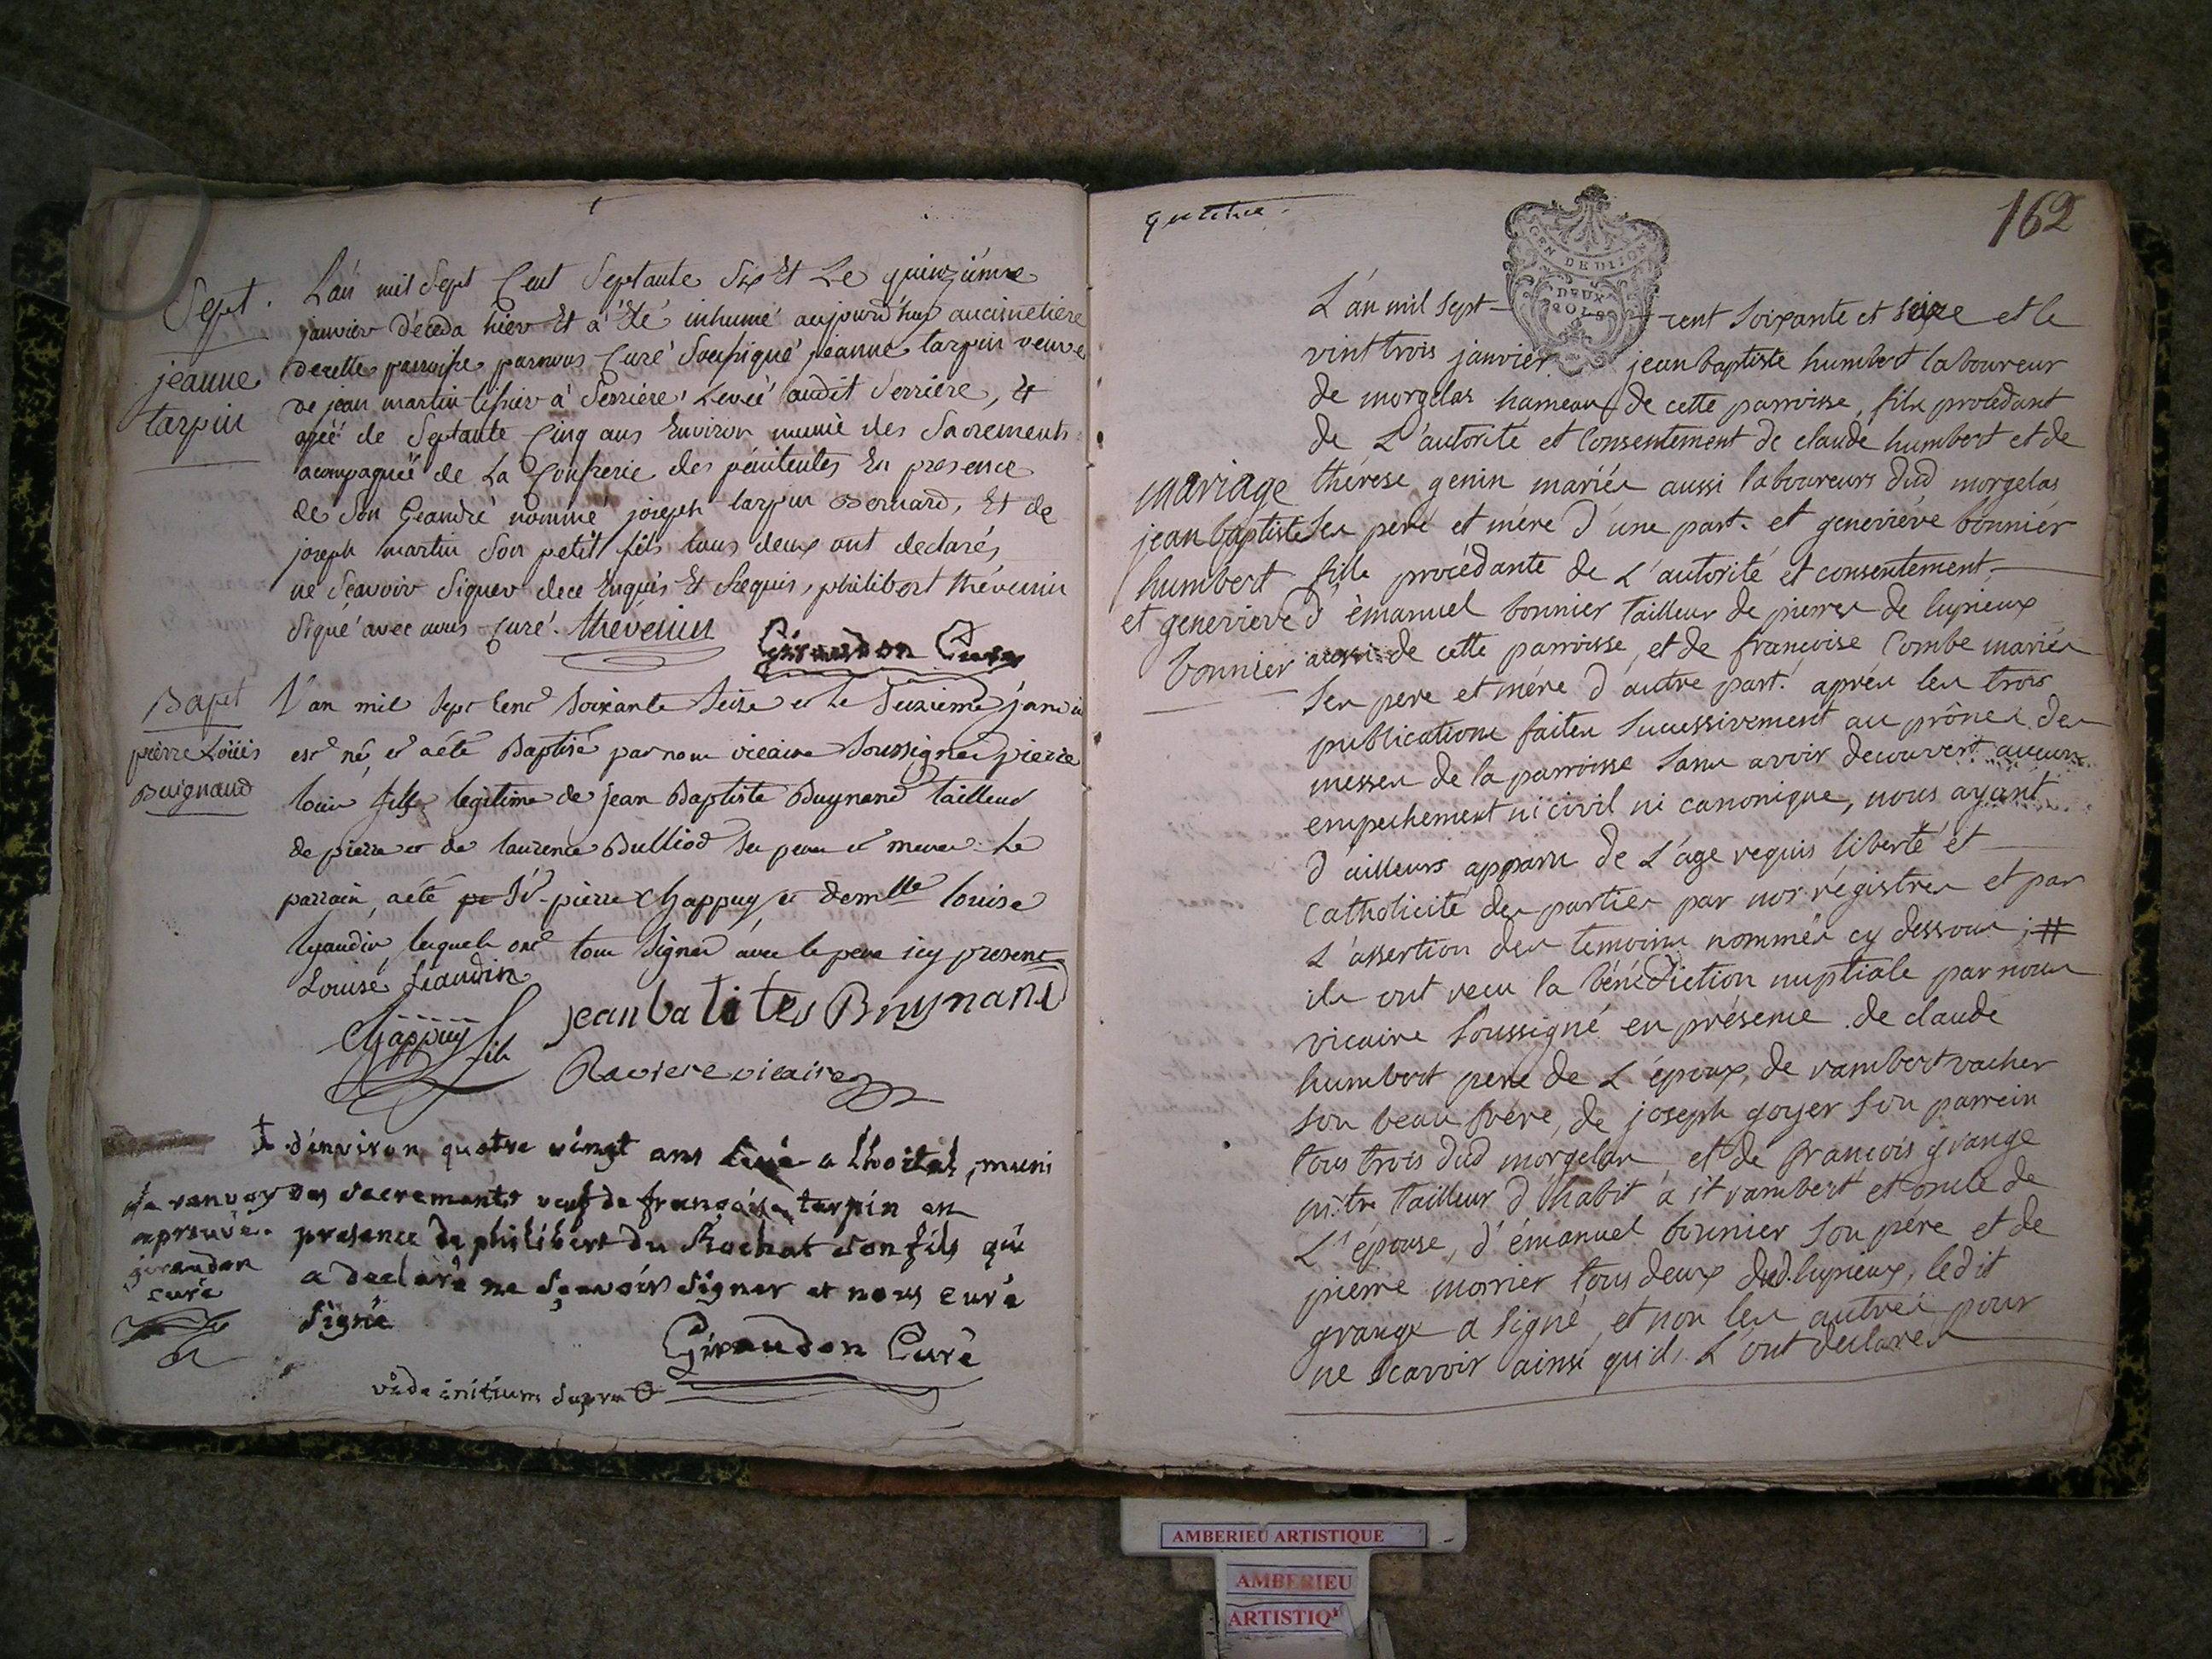 Sept.
jeanne
tarpin
L'an mil Sept Cent Septante Six Et Le quinzième
janvier déceda hier Et a Eté inhumé aujourd'huy aucimetiere
decette parroisse parnous Curé Soussigné jeanne tarpin veuve
de jean martin tisier à Serriére, Levée audit Serriére, et
agée de Septante Cinq ans Environ munie des Sacrements
acompagnée de La Confrerie des pénitentes En presence
de Son Geandre nommé joseph tarpin Bernard, Et de
joseph martin Son petit fils tous deux ont declarés
ne Sçavoir Signer dece Enquis Et Requis, philibert thévenin
Signé avec nous Curé. thévenin
Giraudon Curé
Bapt
pierre Loüis
Buignand
L'an mil Sept Cent Soixante Seize et le Sezieme janvier
est né et aété Baptisé par nous vicaire Soussigné pierre
louis fils legitime de jean Baptiste Buynand tailleur
de pierre et de laurence Bulliod Ses pere et mere Le
parrain, aété Sr. pierre Chappuy et demlle louise
lyaudin, lequels ont tous Signer avec le pere icy present
Louise Liaudin
Chappuy fils
jeanbatites Buynand
Raviere vicaire
d'environ quatre vingt ans Levé a Lhoital, muni
des Sacrements veuf de françoise tarpin en
presence de philibert du Rochat son fils qui
a declaré ne Sçavoir Signer et nous curé
Signé
Le renvoy
aprouvé.
giraudon
curé
Giraudon Curé
vide initium Supra
quatre.
162
GEN DE DIJON
DEUX
SOLS
L'an mil Sept cent Soixante et seize et le
vint trois janvier jean baptiste humbert laboureur
de morgelas hameau de cette parroisse, fils procédant
de L'autorité et Consentement de claude humbert et de
thérese genin mariés aussi laboureurs dud morgelas
Ses peré et mére d'une part. et geneviéve bonnier
fille procédante de L'autorité et consentement
d'émanuel bonnier tailleur de pierres de lupieux
aussi de cette parroisse, et de françoise Combe mariés
Ses pere et mére d'autre part. aprés les trois
publications faites Sucessivement au prônes des
messes de la parroisse Sans avoir decouvert aucun
empechement ni civil ni canonique, nous ayant
d'ailleurs apparu de L'age requis liberté et
Catholicité des parties par nos régistres et par
L'assertion des temoins nommés cy dessous; #
ils ont recu la bénédiction nuptiale par nous
vicaire Soussigné en présence de claude
humbert pere de L'époux, de rambert vacher
Son beau frére, de joseph goyer Son parrein
tous trois dud morgelas, et de françois grange
mtre tailleur d'habit a st rambert et oncle de
L'épouse, d'émanuel bonnier Son pére et de
pierre morrier tous deux dud. lupieux, ledit
grange a Signé, et non les autres pour
ne Scavoir ainsi qu'ils L'ont declarés
mariage
jean baptiste
humbert
et genevieve
bonnier
AMBERIEU ARTISTIQUE
AMBERIEU
ARTISTIQ